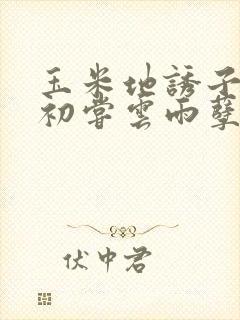 玉米地誘子
初嘗雲雨孽
伏中君